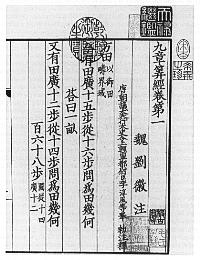 九章算經卷第一
魏劉徽注
唐朝議大夫行太史令上輕車都尉臣李淳風等奉敕注釋
方田以御田疇界域
今有田廣十五步從十六步問為田幾何
荅曰一畝
又有田廣十二步從十四步問為田幾何
百六十八步圖從十四
廣十二